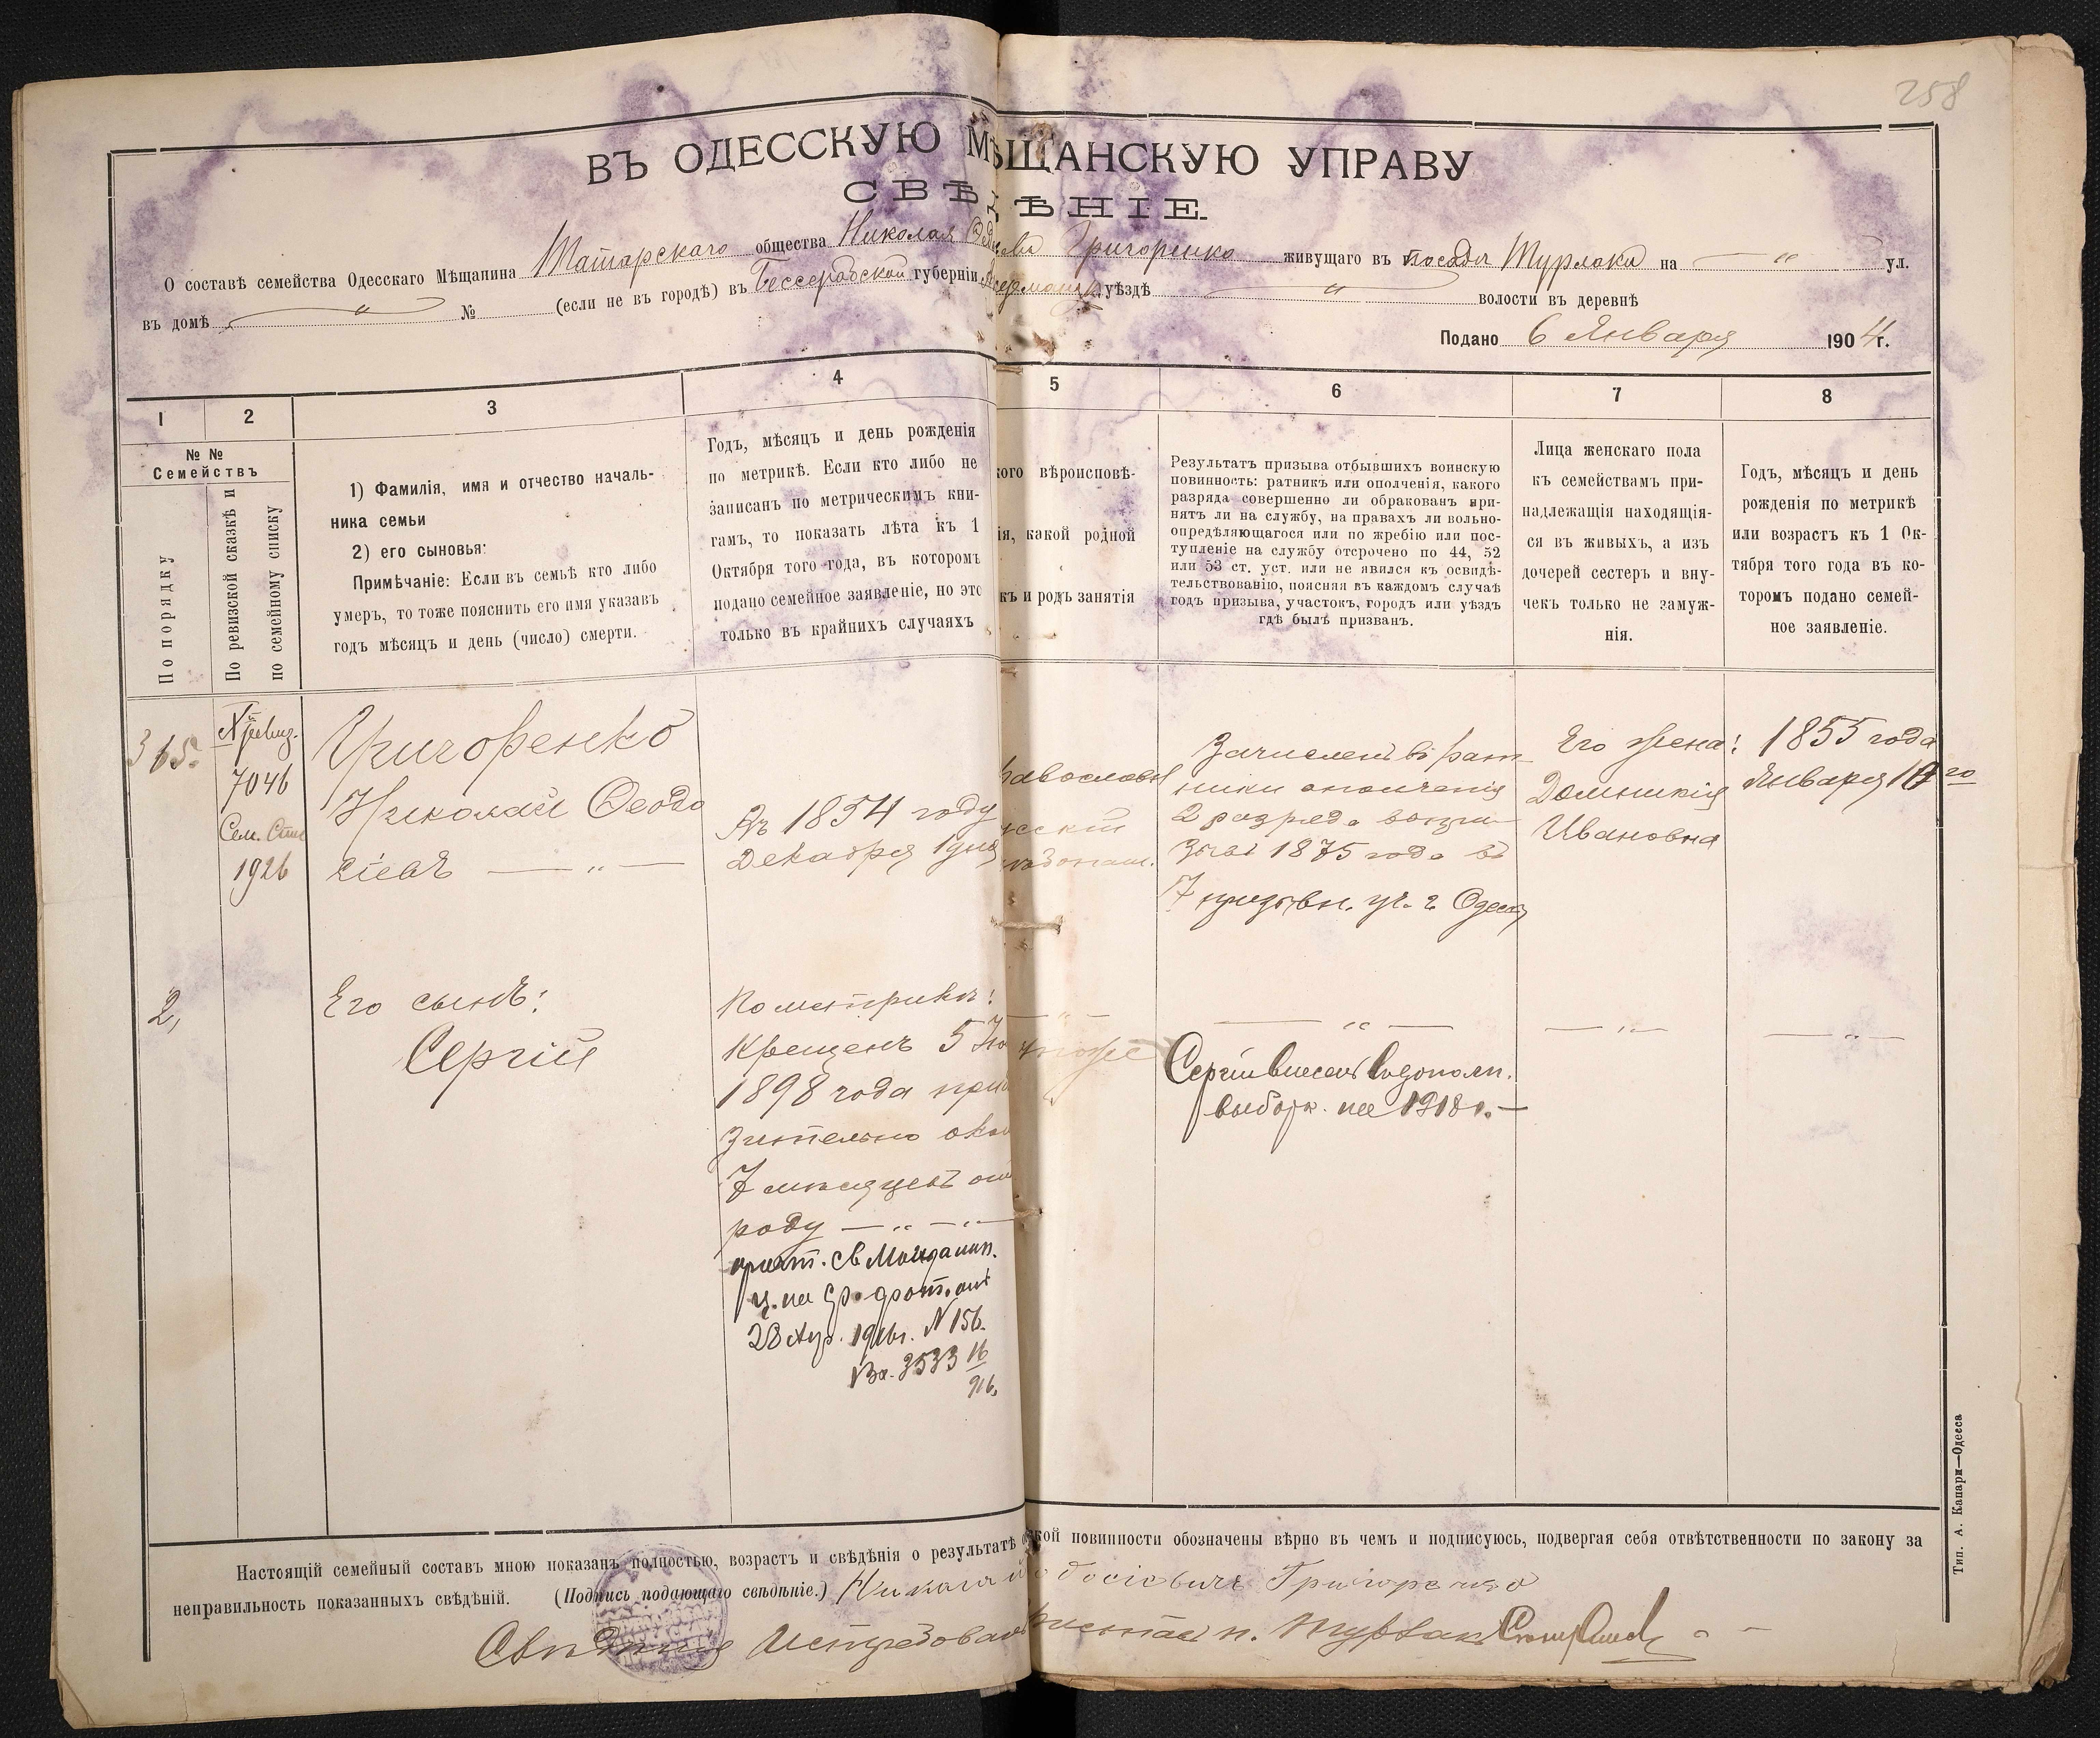 258
ВЪ ОДЕССКУЮ МѢЩАНСКУЮ УПРАВУ
СВѢДѢНІЕ.
О составѣ семейства Одесскаго Мѣщанина Татарскаго общества Николая Григоренко живущаго въ посадѣ Турлаки на — " ул.
въ домѣ — " № (если не въ городѣ) въ Бессарабской губерніи уѣздѣ — " волости въ деревнѣ
Подано 6 Января 1904 г.
1 2 3 4 5 6 7 8
№ №
Семействъ
По порядку
По ревизской сказкѣ и
по семейному списку
1) Фамилія, имя и отчество началь-
ника семьи
2) его сыновья:
Примѣчаніе: Если въ семьѣ кто либо
умеръ, то тоже пояснить его имя указавъ
годъ мѣсяцъ и день (число) смерти.
Годъ, мѣсяцъ и день рожденія
по метрикѣ. Если кто либо не
записанъ по метрическимъ кни-
гамъ, то показать лѣта къ 1
Октября того года, въ которомъ
подано семейное заявленіе, но это
только въ крайнихъ случаяхъ
кого вѣроисповѣ-
ія, какой родной
къ и родъ занятія
Результатъ призыва отбывшихъ воинскую
повинность: ратникъ или ополченія, какого
разряда совершенно ли обракованъ при-
нятъ ли на службу, на правахъ ли вольно-
опредѣляющагося или по жребію или пос-
тупленіе на службу отсрочено по 44, 52
или 53 ст. уст. или не явился къ освидѣ-
тельствованію, поясняя въ каждомъ случаѣ
годъ призыва, участокъ, городъ или уѣздъ
гдѣ былъ призванъ.
Лица женскаго пола
къ семействамъ при-
надлежащія находящія-
ся въ живыхъ, а изъ
дочерей сестеръ и вну-
чекъ только не замуж-
нія.
Годъ, мѣсяцъ и день
рожденія по метрикѣ
или возрастъ къ 1 Ок-
тября того года въ ко-
торомъ подано семей-
ное заявленіе.
365.
X ревиз.
7046
Сем. Спис
1926
Григоренко
Николай Феодо
сіевъ — " —
Въ 1854 году
Декабря 1 дня
равославн
Зачисленъ въ рат
ники ополченія
2 разряда
зыва 1875 года въ
7 призывн. уч. г. Одессы
Его жена:
Домникія
Ивановна
1855 года
Января 10го
2,
Его сынъ:
Сергій
По метрикѣ:
Крещенъ 5
1898 года
зительно
7 мѣсяцевъ
роду — " — " —
— " —
тоже
— " —
Сергій внесенъ
на 1918 г. —
— " —
— " —
28 Апр. 1916 г. N 156.
Вх. 3533 16
916.
Настоящій семейный составъ мною показанъ полностью, возрастъ и свѣдѣнія о результатѣ ской повинности обозначены вѣрно въ чемъ и подписуюсь, подвергая себя отвѣтственности по закону за
неправильность показанныхъ свѣдѣній. (Подпись подающаго свѣдѣніе.) Николай досіевичъ Григоренко
Свѣдѣніе п. Турлаки
Тип. А. Капари—Одесса